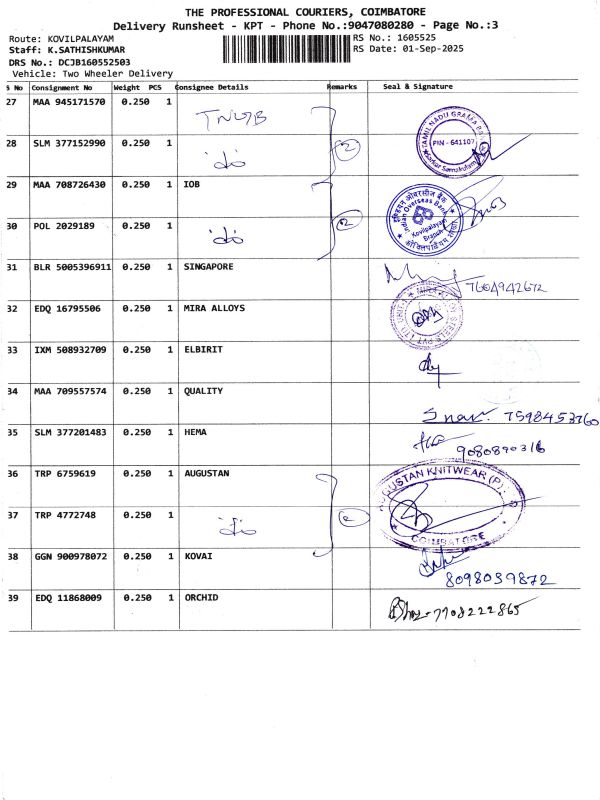 THE PROFESSIONAL COURIERS, COIMBATORE
Delivery Runsheet - KPT - Phone No.:9047080280 - Page No.:3
Route: KOVILPALAYAM
RS No.: 1605525
Staff: K.SATHISHKUMAR
RS Date: 01-Sep-2025
DRS No.: DCJB160552503
Vehicle: Two Wheeler Delivery
S No Consignment No Weight PCS Consignee Details Remarks Seal & Signature
27 MAA 945171570 0.250 1 TNGB
TAMIL NADU GRAMA BANK
PIN - 641107
28 SLM 377152990 0.250 1 do 2
29 MAA 708726430 0.250 1 IOB
Indian Overseas Bank
Kovilpalayam
Branch
30 POL 2029189 0.250 1 do 2
31 BLR 5005396911 0.250 1 SINGAPORE
7604942672
32 EDQ 16795506 0.250 1 MIRA ALLOYS
33 IXM 508932709 0.250 1 ELBIRIT
34 MAA 709557574 0.250 1 QUALITY
7598453760
35 SLM 377201483 0.250 1 HEMA
9080890316
36 TRP 6759619 0.250 1 AUGUSTAN
AUGUSTAN KNITWEAR (P)
COIMBATORE
37 TRP 4772748 0.250 1 do 2
38 GGN 900978072 0.250 1 KOVAI
8098039872
39 EDQ 11868009 0.250 1 ORCHID
7708222865